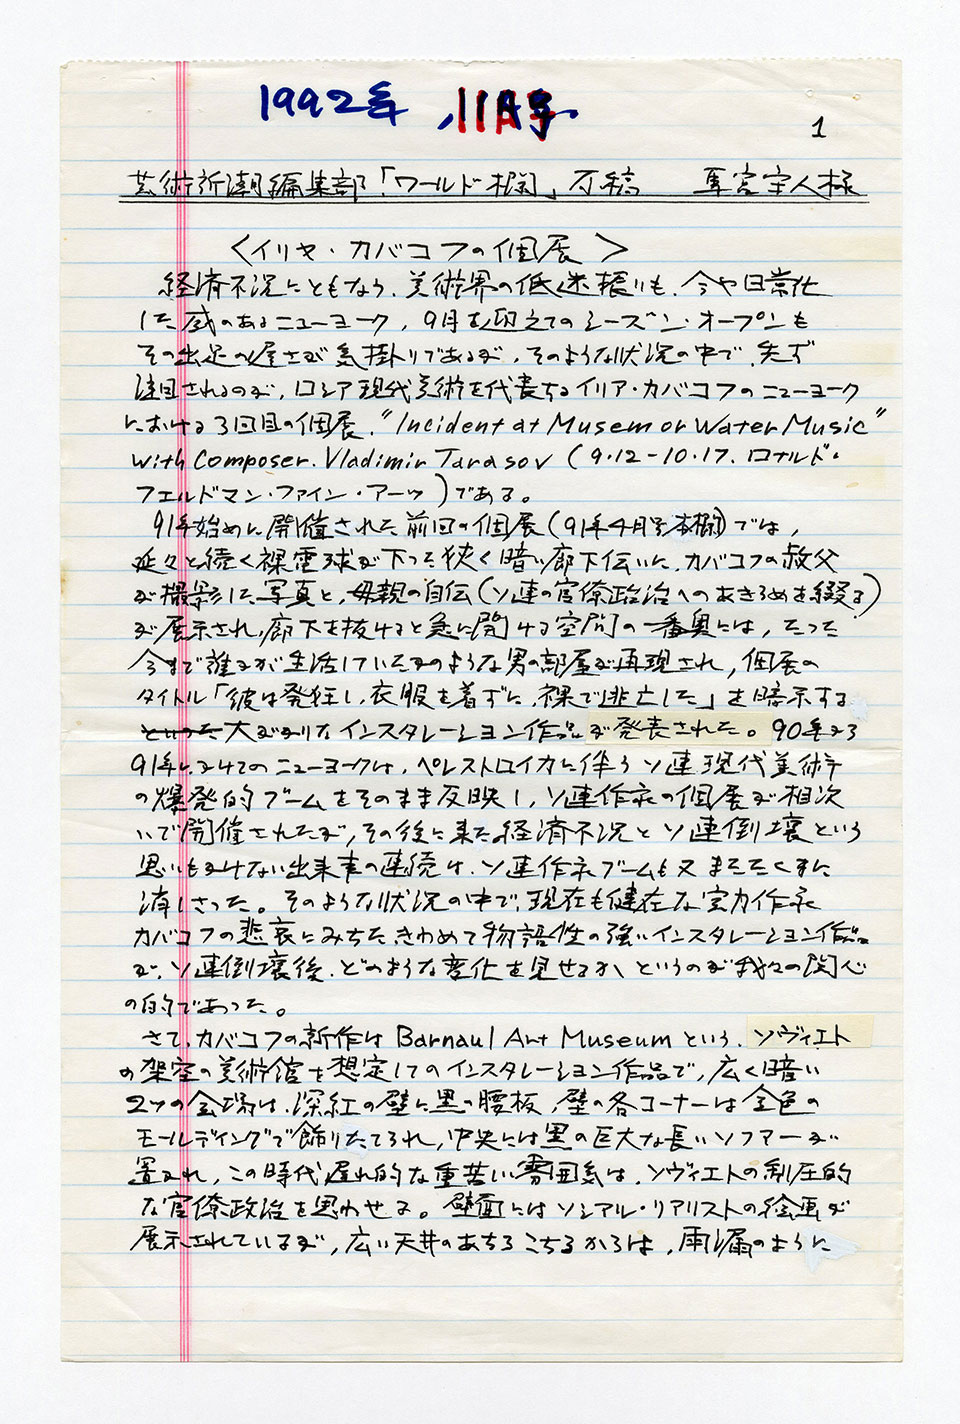 1992年 11月号
1
芸術新潮編集部「ワールド欄」原稿 馬宮守人様
〈イリヤ・カバコフの個展〉
経済不況にともなう、美術界の低迷振りも、今や日常化
した感のあるニューヨーク，9月を迎えてのシーズン・オープンも
その出足の遅さが気掛りであるが、そのような状況の中で、先ず
注目されるのが、ロシア現代美術を代表するイリア・カバコフのニューヨーク
における3回目の個展、"Incident at Musem or Water Music"
with Composer. Vladimir Tarasov (9.12-10.17. ロナルド・
フェルドマン・ファイン・アーツ)である。
91年始めに開催された前回の個展(91年4月号本欄)では，
延々と続く裸電球が下った狭く暗い廊下伝いに、カバコフの叔父
が撮影した写真と、母親の自伝(ソ連の官僚政治へのあきらめを綴る)
が展示され、廊下を抜けると急に開ける空間の一番奥には，たった
今まで誰かが生活していたかのような男の部屋が再現され，個展の
タイトル「彼は発狂し、衣服を着ずに、裸で逃亡した」を暗示する
といった大がかりなインスタレーション作品が発表された。90年から
91年にかけてのニューヨークは、ペレストロイカに伴うソ連現代美術
の爆発的ブームをそのまま反映し、ソ連作家の個展が相次
いで開催されたが，その後に来た経済不況とソ連倒壊という
思いもかけない出来事の連続は、ソ連作家ブームも又またたくまに
消しさった。そのような状況の中で、現在も健在な実力作家
カバコフの悲哀にみちたきわめて物語性の強いインスタレーション作品
が、ソ連倒壊後、どのような変化を見せるか、というのが我々の関心
の的であった。
さて、カバコフの新作は Barnaul Art Museum という、ソヴィエト
の架空の美術館を想定してのインスタレーション作品で，広く暗い
2つの会場は、深紅の壁に黒の腰板，壁の各コーナーは金色の
モールディングで飾りたてられ，中央には黒の巨大な長いソファーが
置かれ，この時代遅れ的な重苦しい雰囲気は、ソヴィエトの制圧的
な官僚政治を思わせる。壁面にはソシアル・リアリストの絵画が
展示されているが，広い天井のあちらこちらからは，雨漏のように